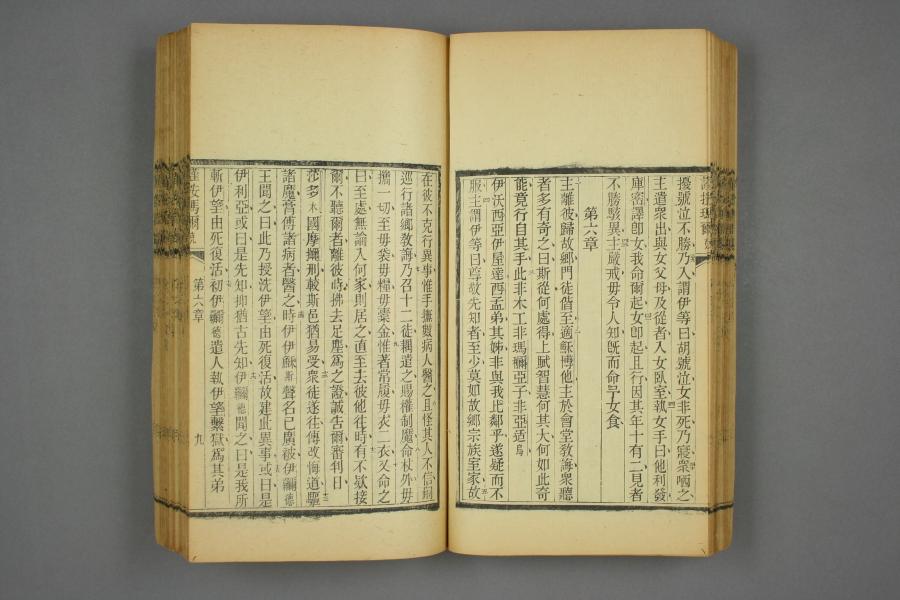 擾號泣不勝乃入謂伊等曰胡號泣女非死乃寢衆哂之
主遣衆出與女父母及從者入女臥室執女手曰他利發
庫密譯卽女我命爾起女卽起且行因其年十有二見者
不勝駭異主嚴戒毋令人知旣而命予女食
第六章
主離彼歸故鄉門徒偕至適穌博他主於會堂敎誨衆聽
者多有奇之曰斯從何處得上賦智慧何其大何如此奇
能竟行自其手此非木工非瑪禰亞子非亞适烏
伊沃西亞伊屋達西孟弟其姊非與我比鄰乎遂疑而不
服主謂伊等曰尊敬先知者至少莫如故鄉宗族室家故
在彼不克行異事惟手撫數病人醫之且怪其人不信嗣
巡行諸鄉敎誨乃召十二徒耦遣之賜權制魔命杖外毋
攜一切至毋袋毋糧毋橐金惟著常履毋衣二衣又命之
曰至處無論入何家則居之直至去彼他往時有不欵接
爾不聽爾者離彼時拂去足塵爲之證誠吿爾審判日
莎多木國摩攦刑較斯邑猶易受衆徒遂往傳改悔道驅
諸魔膏傅諸病者醫之時伊伊穌斯聲名已廣被伊爾德
王聞之曰此乃授洗伊望由死復活故建此異事或曰是
伊利亞或曰是先知抑猶古先知伊爾德聞之曰是我所
斬伊望由死復活初伊爾德遣人執伊望繫獄爲其弟
第六章
九